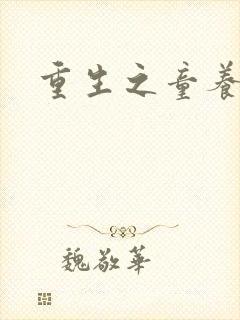 重生之童養
魏敬華